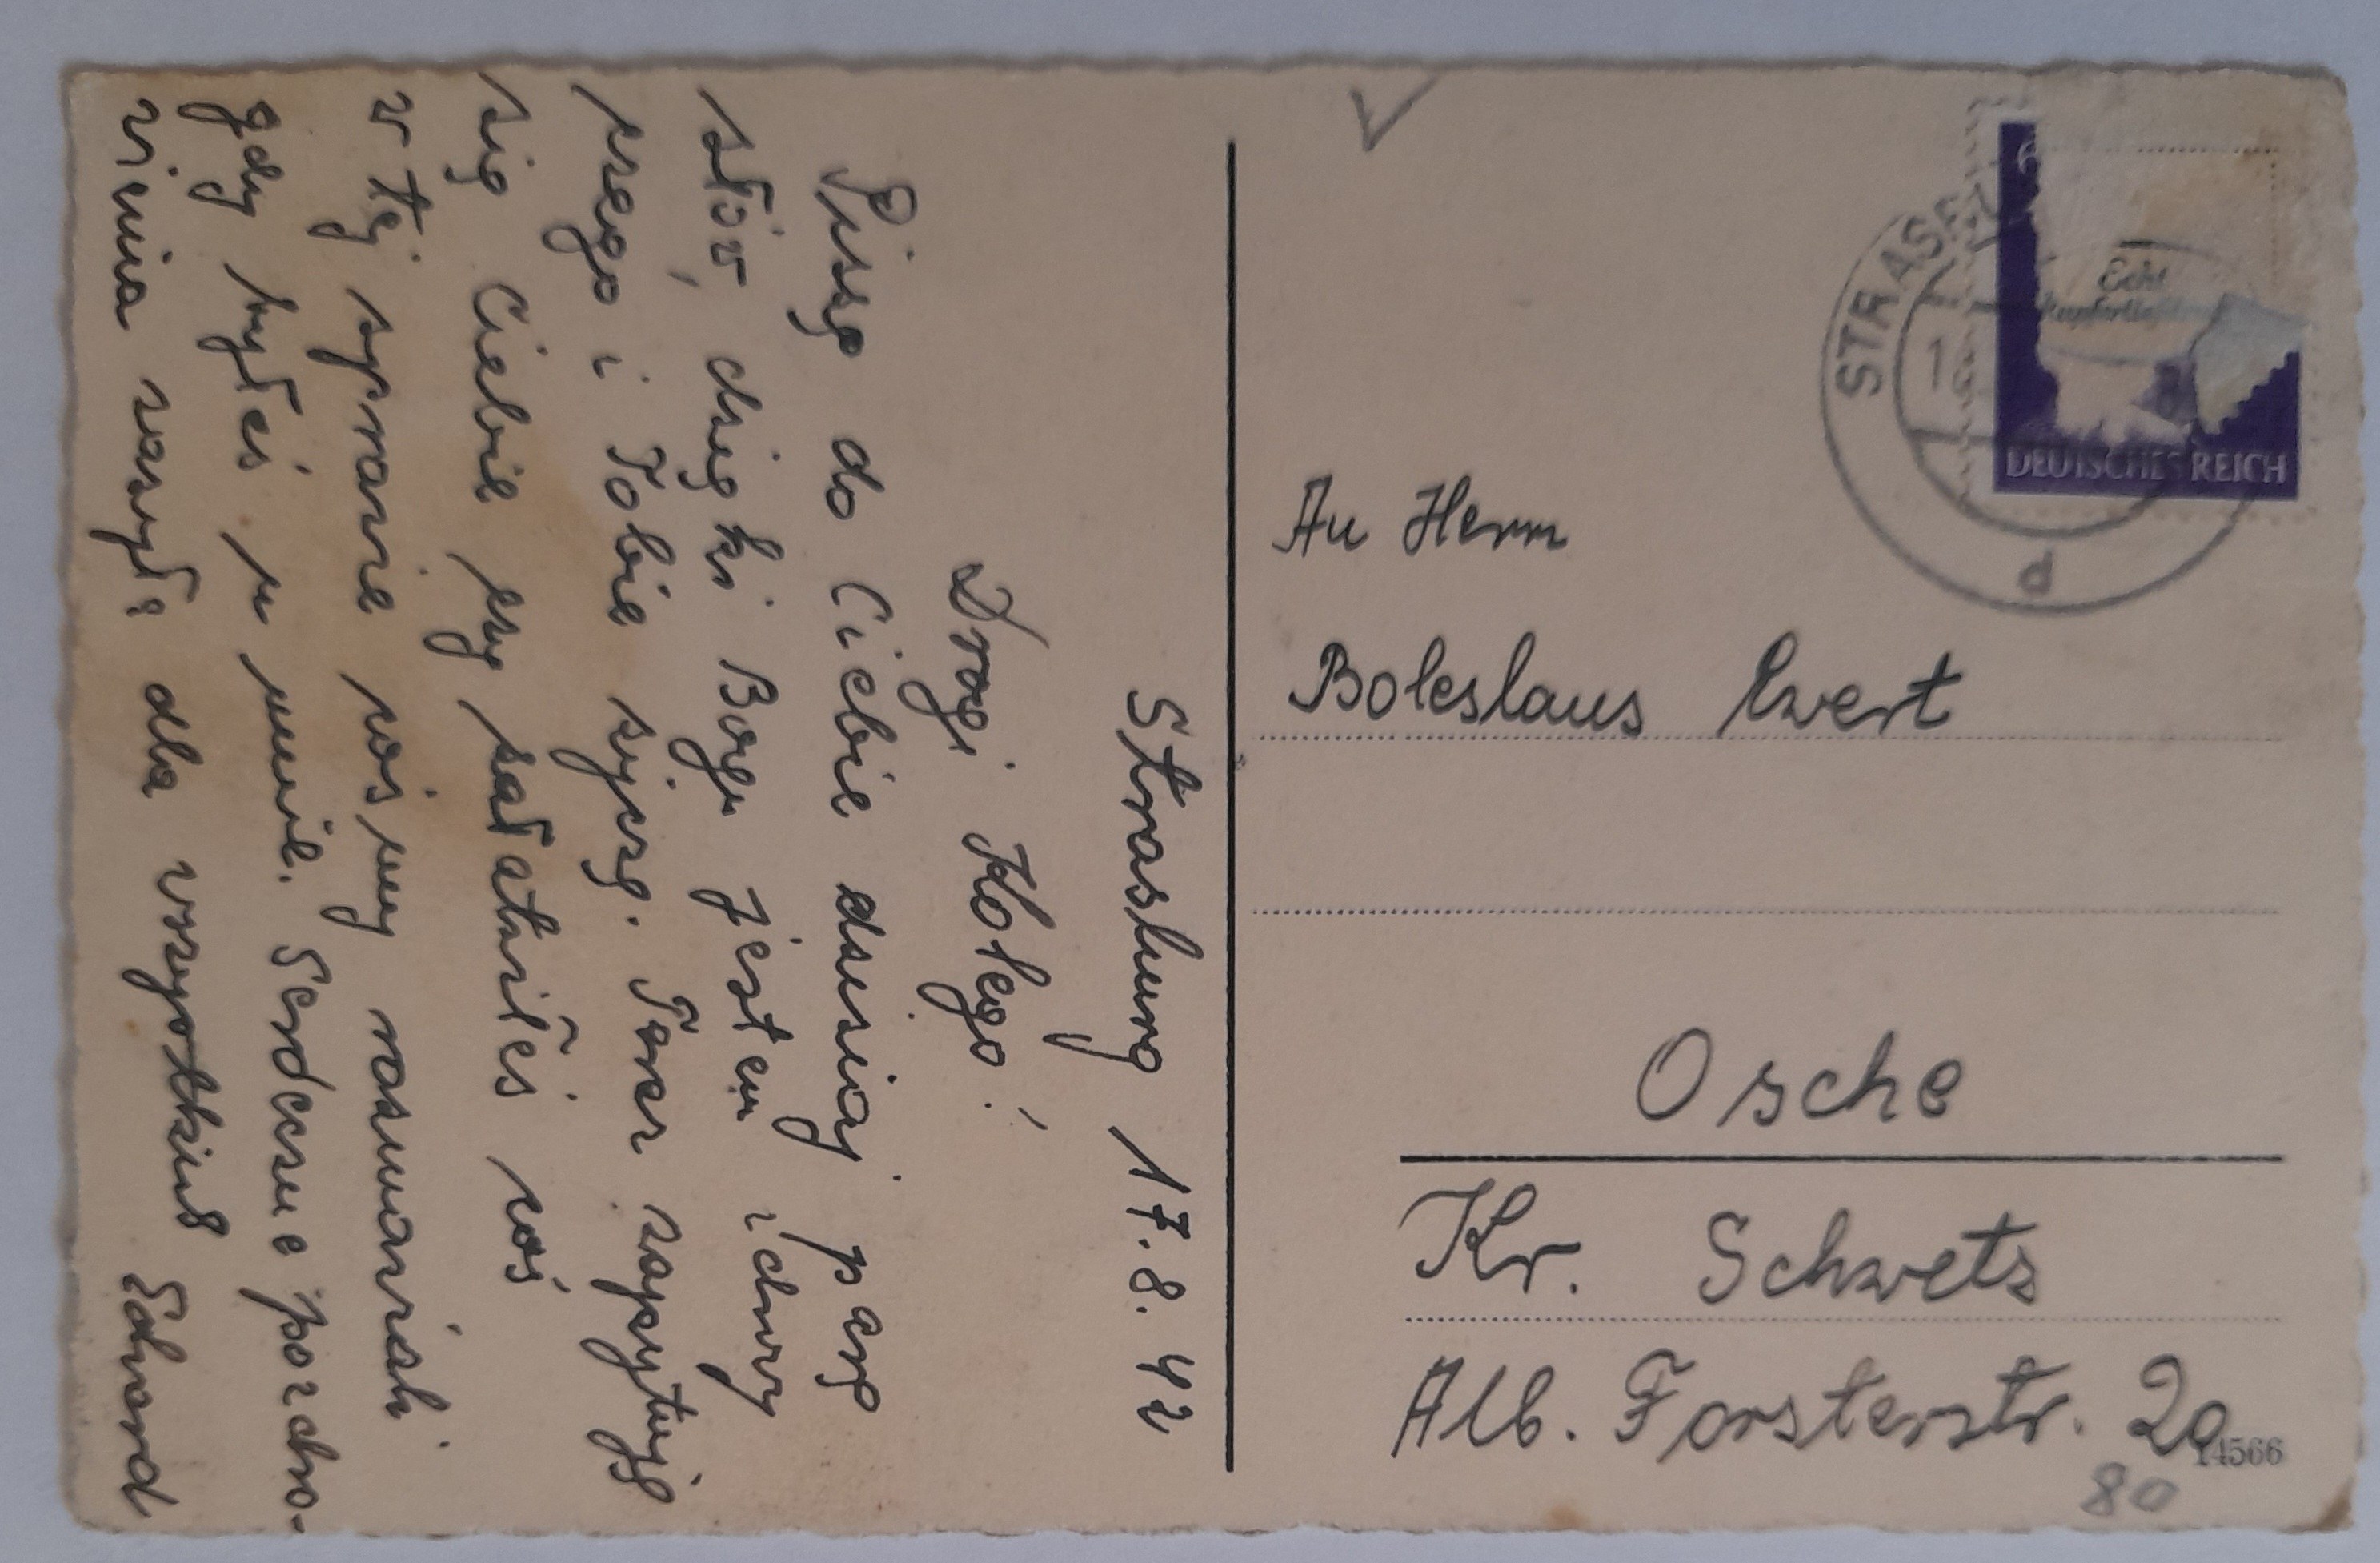 Strasburg 17.8.42
Drogi Kolego!
Pisze do Ciebie dzisiaj parę
słów, dzięki Bogu jestem zdrwy
czego i Tobie życzę. Teraz zapytuję
się Ciebie czy załatwiłeś coś
w tej sprawie coś my rozmawiali
gdy byłeś u mnie. Serdeczne pozdro-
wienia zasyła dla wszystkich Edward
An Herrn
Boleslaus Ewert
Osche
Kr. Schwetz
Alb. Forsterstr. 20
14566
80
STRASB
6
Echt
Kupfertiefdruck
DEUTSCHES REICH
d